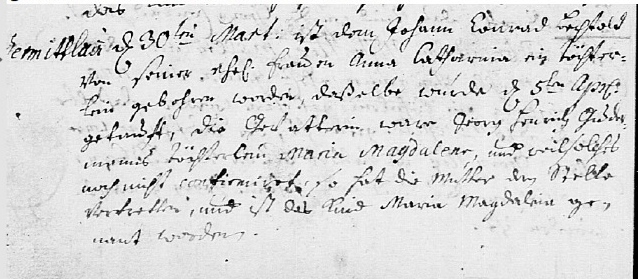 d 30ten Mart. ist dem Johann Conrad Bechtold
von seiner ehel. Frauen Anna Catharina ein Töchter-
lein gebohren worden, daßelbe wurde d 5ten Apr.
getauft, die Gevatterin ware Georg Henrich
Töchterlein Maria Magdalena, und weil solches
noch nicht confirmiret, so hat die Mutter den Stelle
vertretten, und ist das Kind Maria Magdalena ge-
nant worden.